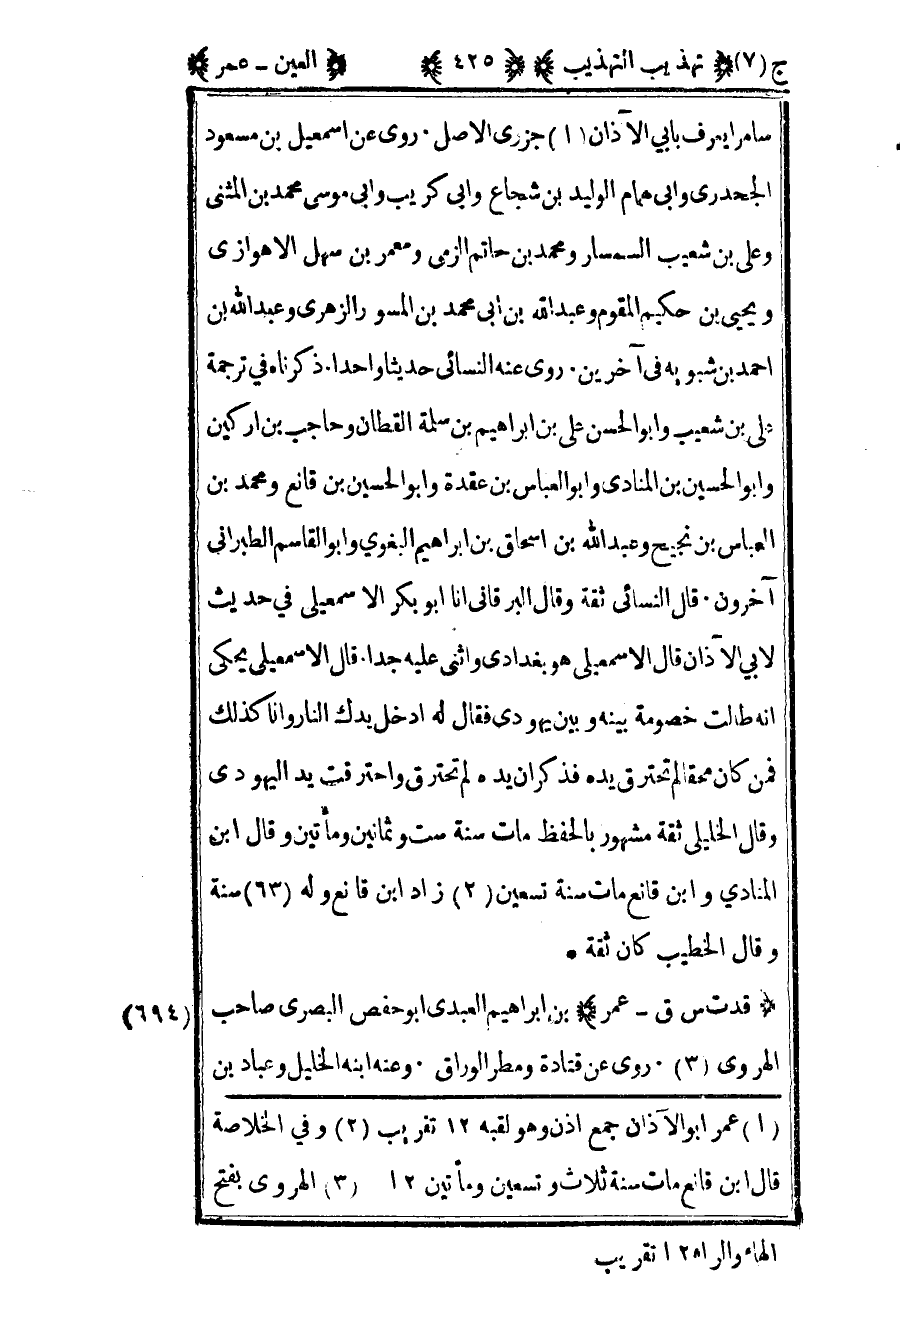 ج(٧) ﴿ تهذيب التهذيب ﴾ ﴿ ٤٢٥ ﴾ ﴿ العين - عمر ﴾
سامرا يعرف بابي الآذان (١) جزرى الاصل · روى عن اسمعيل بن مسعود
الجحدرى وابى همام الوليد بن شجاع وابى كريب وابى موسى محمد بن المثنى
وعلى بن شعيب السمسار ومحمد بن حاتم الزمى ومعمر بن سهل الاهوازى
ويحيى بن حكيم المقوم وعبدالله بن ابى محمد بن المسور الزهرى وعبدالله بن
احمد بن شبويه فى آخرين · روى عنه النسائى حديثا واحدا · ذكرناه في ترجمة
على بن شعيب وابوالحسن على بن ابراهيم بن سلمة القطان وحاجب بن اركين
وابوالحسين بن المنادى وابوالعباس بن عقدة وابوالحسين بن قانع ومحمد بن
العباس بن نجيح وعبدالله بن اسحاق بن ابراهيم البغوي وابوالقاسم الطبرانى
آخرون · قال النسائى ثقة وقال البرقانى انا ابو بكر الاسمعيلى في حديث
لابي الآذان قال الاسمعيلى هو بغدادى واثنى عليه جدا · قال الاسمعيلى يحكى
انه طالت خصومة بينه وبين يهودى فقال له ادخل يدك النار وانا كذلك
فمن كان محقا لم تحترق يده فذكر ان يده لم تحترق واحترقت يد اليهودى
وقال الخليلى ثقة مشهور بالحفظ مات سنة ست وثمانين ومأتين وقال ابن
المنادي وابن قانع مات سنة تسعين (٢) زاد ابن قانع وله (٦٣) سنة
وقال الخطيب كان ثقة •
﴿ قدت س ق - عمر ﴾ بن ابراهيم العبدى ابو حفص البصرى صاحب (٦٩٤)
الهروى (٣) · روى عن قتادة ومطر الوراق · وعنه ابنه الخليل وعباد بن
(١) عمر ابوالآذان جمع اذن وهو لقبه ١٢ تقريب (٢) وفي الخلاصة
قال ابن قانع مات سنة ثلاث وتسعين ومأتين ١٢ (٣) الهروى بفتح
الهاء والراء ١٢ تقريب